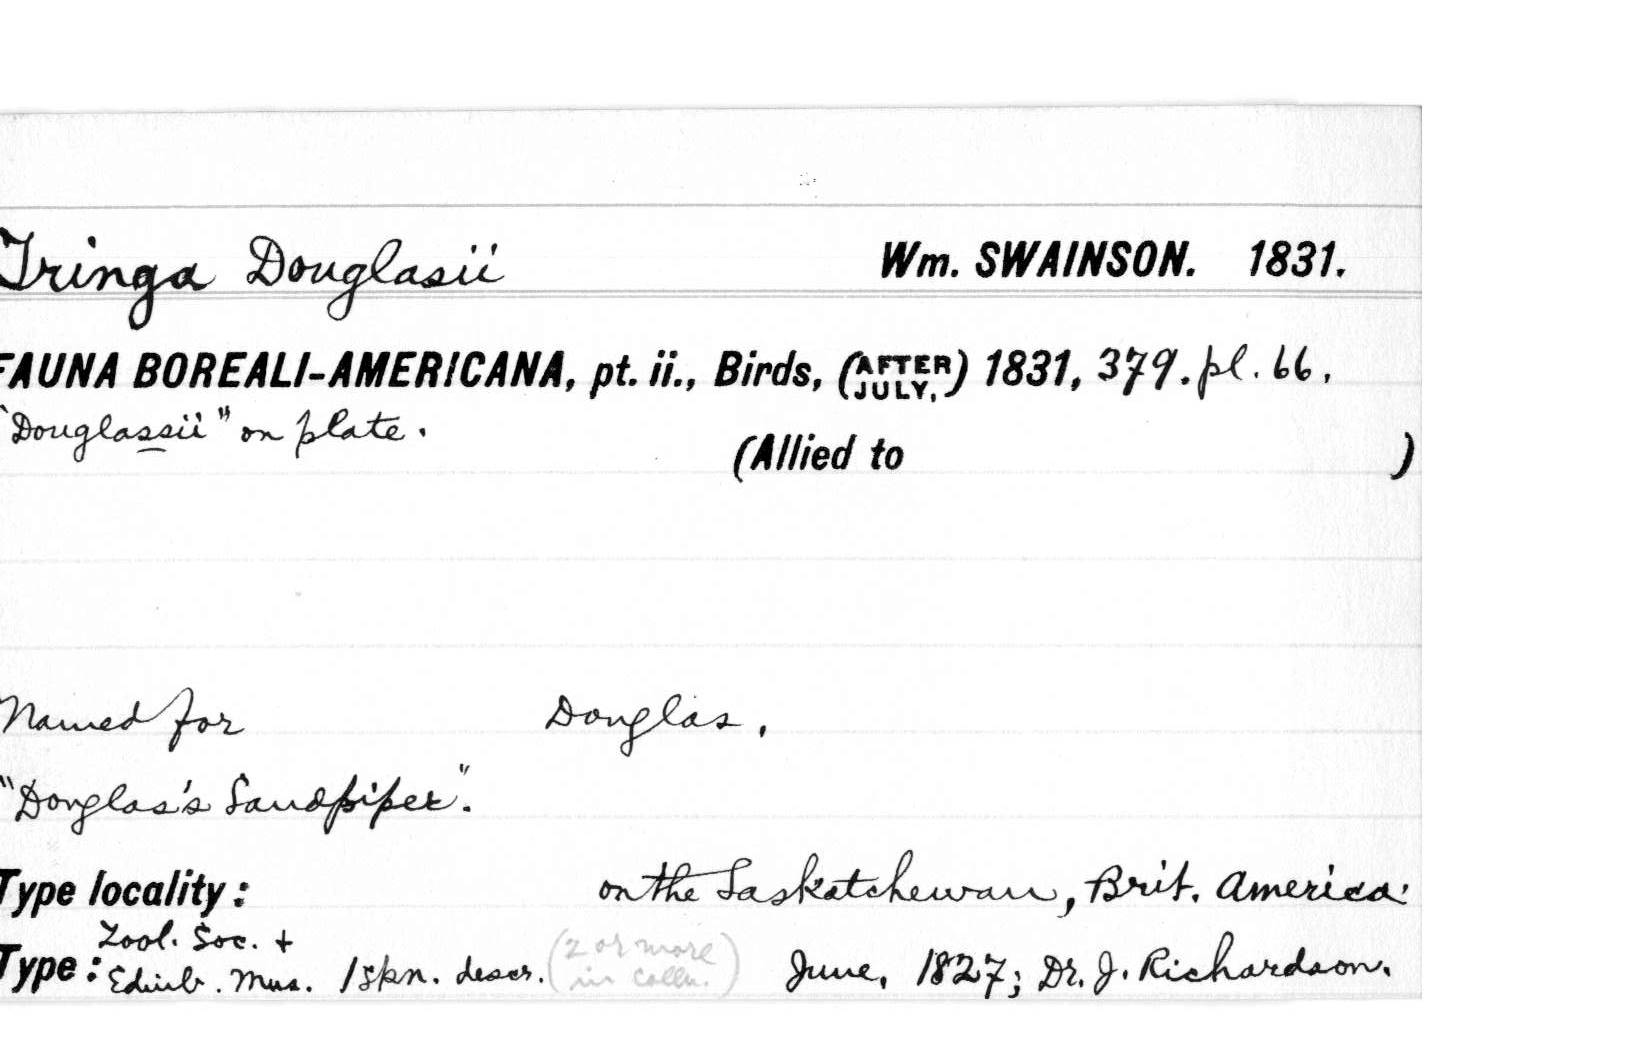 Tringa Douglasii Wm. SWAINSON. 1831.
FAUNA BOREALI-AMERICANA, pt. ii., Birds, (AFTER JULY,) 1831, 379. pl. 66.
"Douglassii" on plate.
(Allied to )
Named for Douglas.
"Douglas's Sandpiper".
Type locality: on the Saskatchewan, Brit. America.
Zool. Soc. +
Type: Edinb. Mus. 1 spn. descr. (2 or more in colln.) June, 1827; Dr. J. Richardson.